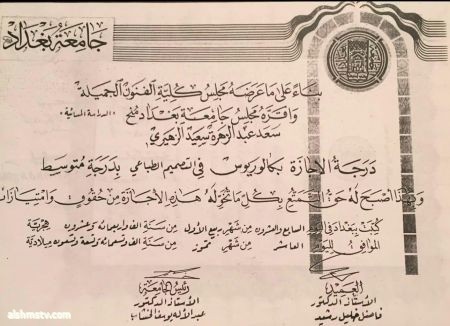 جامعة بغداد
بناءً على ما عرضه مجلس كلية الفنون الجميلة
واقره مجلس جامعة بغداد منح
"الدراسة المسائية"
سعد عبد الزهرة سعيد الزهيري
درجة الاجازة بكالوريوس في التصميم الطباعي بدرجة متوسط
وبهذا اصبح له حق التمتع بكل ما تخوله هذه الأجازة من حقوق وامتيازات
كتب ببغداد في اليوم السابع والعشرون من شهر ربيع الأول من سنة الف واربعمائة وعشرون هجرية
الموافق لليوم العاشر من شهر تموز من سنة الف وتسعمائة وتسعة وتسعون ميلادية
العميد
الأستاذ الدكتور
فاضل خليل رشيد
رئيس الجامعة
الأستاذ الدكتور
عبد الاله يوسف الخشاب
alshmatv.com